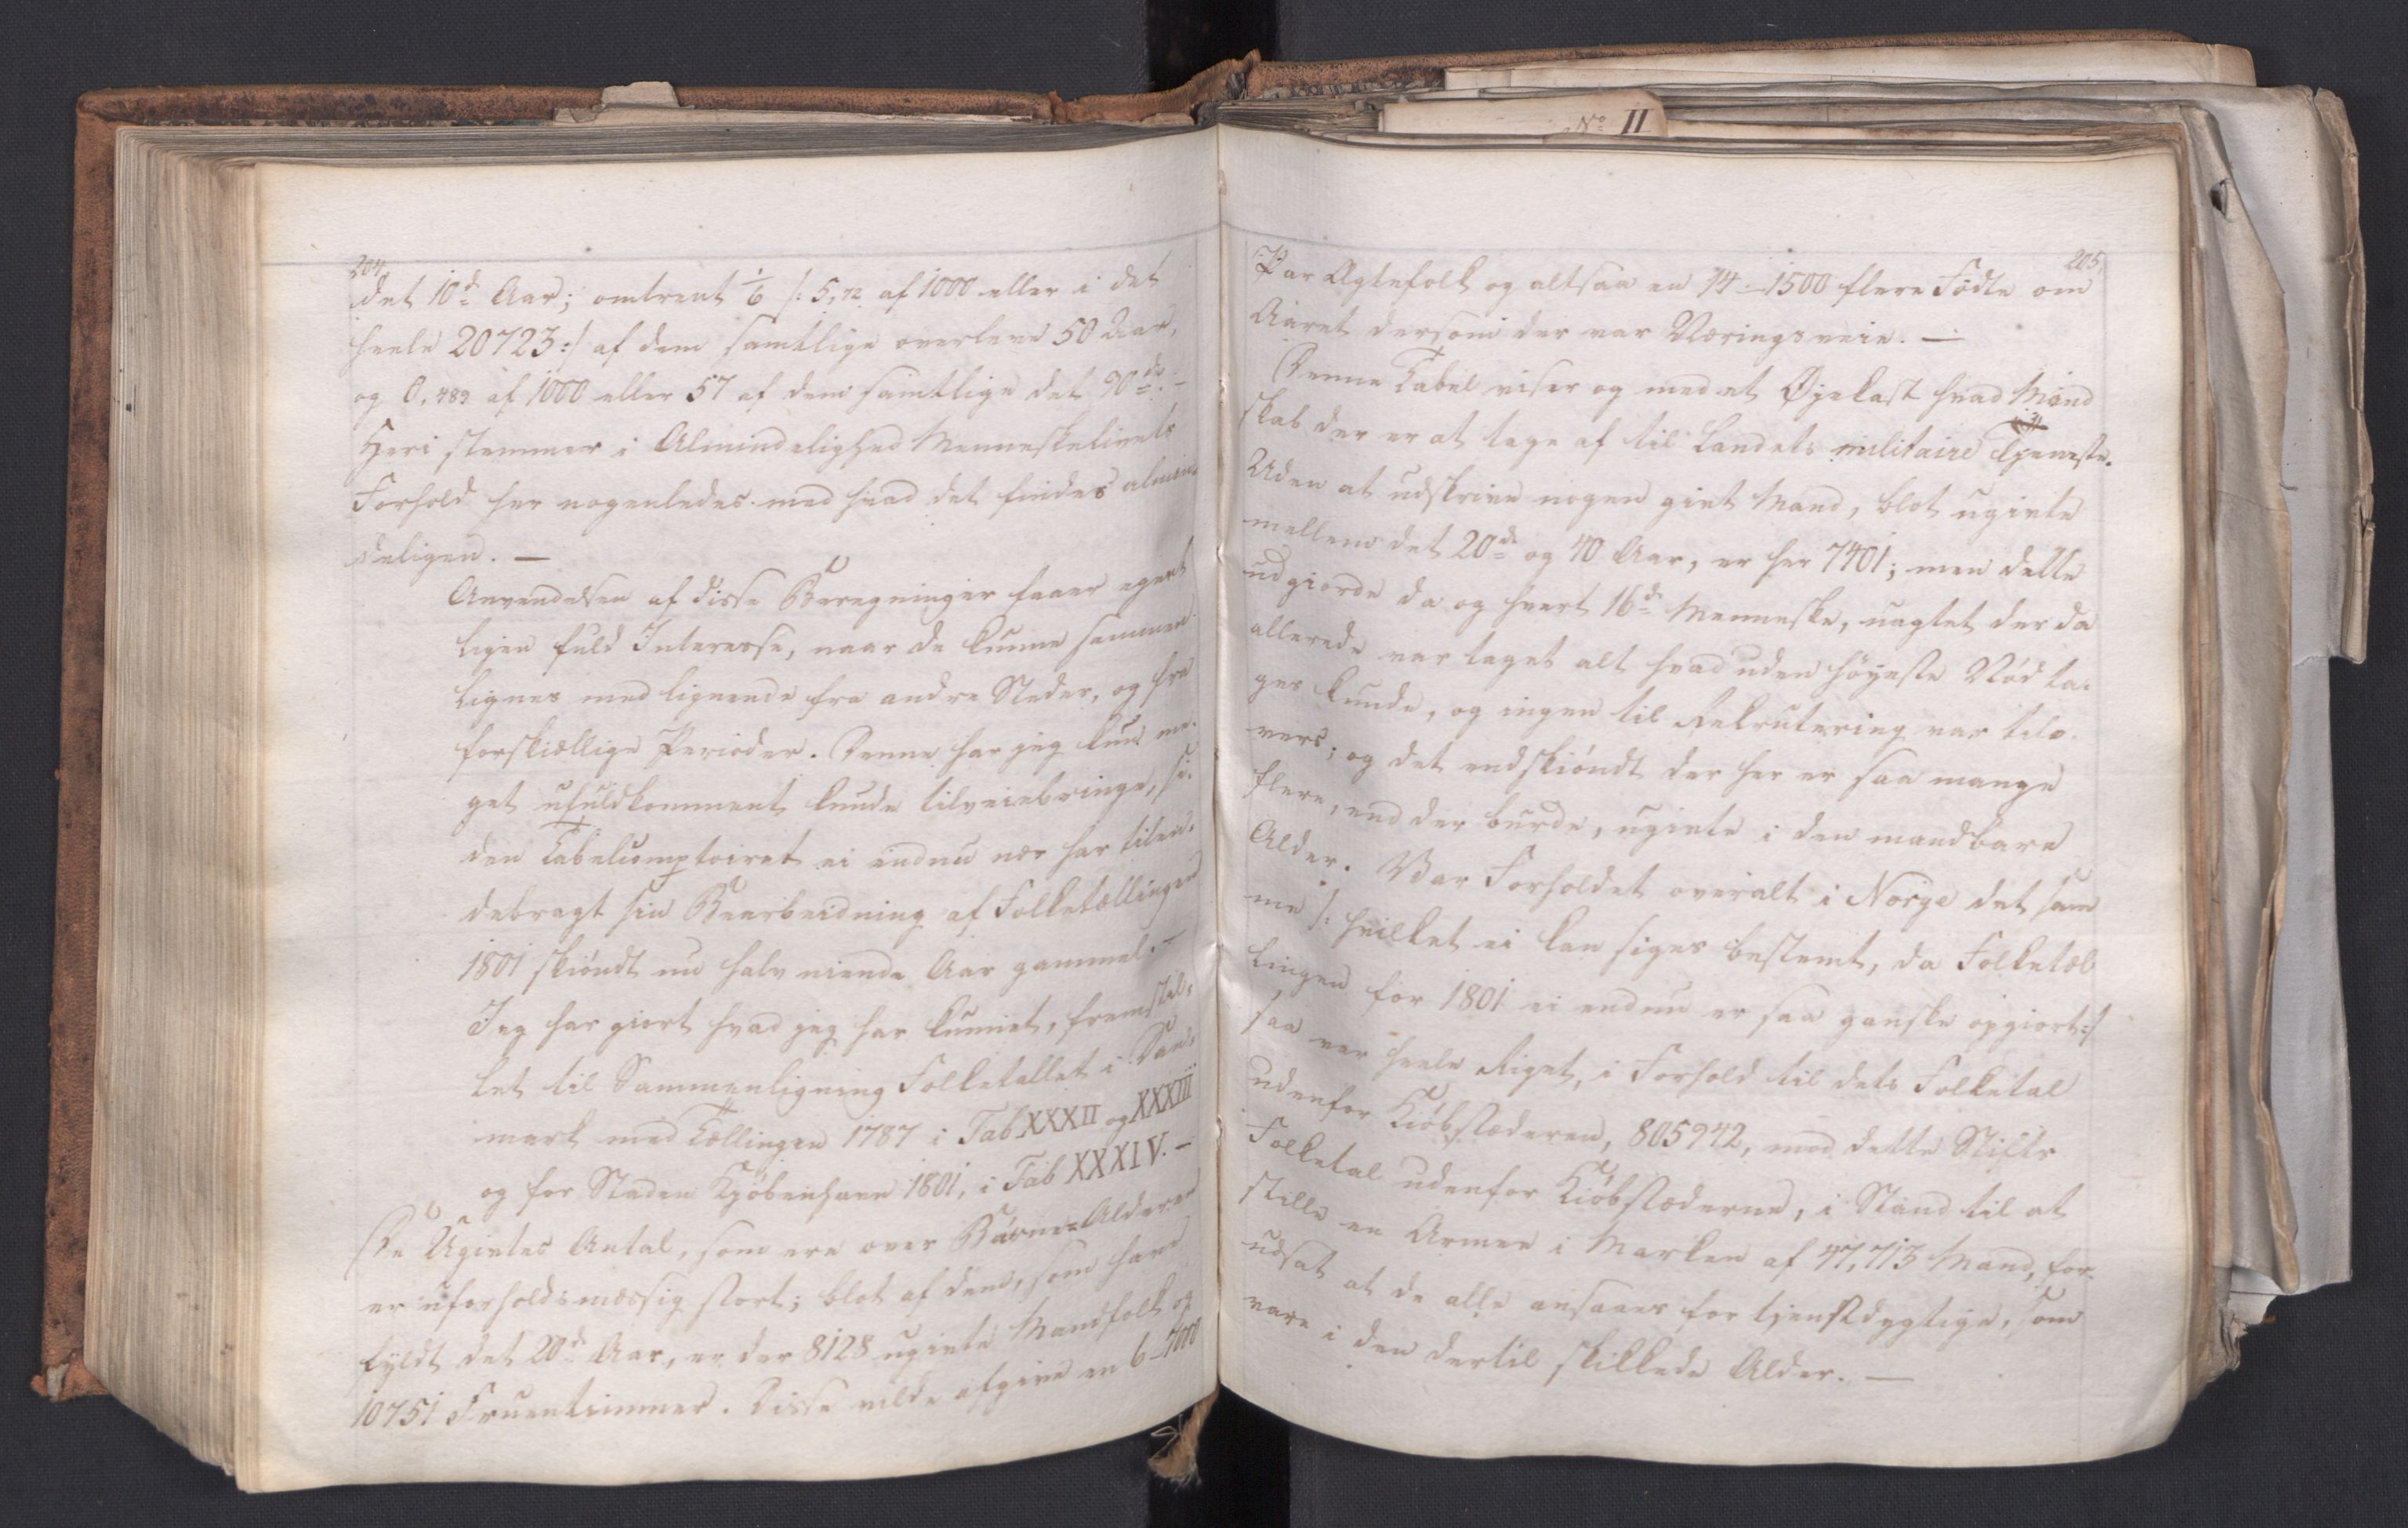 No II
204.
det 10de Aar; omtrent 1/6 /: 5,72 af 1000 eller i det
heele 20723:/ af dem samtlige overleve 50 Aar,
og 0,489 af 1000 eller 57 af dem samtlige det 90de. —
Heri stemmer i Almindelighed Menneskelivets
Forhold her nogenledes med hvad det findes almin-
deligen. —
Anvendelsen af disse Beregninger faaer egent
ligen fuld Interesse, naar de kunne sammen
lignes med lignende fra andre Steder, og fra
forskiællige Perioder. Denne har jeg kun me-
get ufuldkomment kunde tilveiebringe, si-
den Tabelcomptoiret ei endnu nær har tilen-
debragt sin Bearbeidning af Folketællingen
1801 skiøndt nu halv niende Aar gammel. —
Jeg har giort hvad jeg har kunnet, fremstil-
let til Sammenligning Folketallet i Dan-
mark med Tællingen 1787 i Tab XXXII og XXXIII
og for Staden Kjøbenhavn 1801, i Tab XXXIV. —
De Ugiftes Antal, som ere over Børne-Alderen
er uforholdsmæssig stort; blot af dem, som have
fyldt det 20de Aar, er der 8128 ugifte Mandfolk og
10751 Fruentimmer. Disse vilde afgive en 6-7000
205.
Par Ægtefolk og altsaa en 14 — 1500 flere Fødte om
Aaret dersom der var Næringsveie. —
Denne Tabel viser og med et Øjekast hvad Mand
skab der er at tage af til Landets militaire Tjeneste.
Uden at udskrive nogen gift Mand, blot ugifte
mellem det 20de og 40 Aar, er her 7401; men dette
udgiorde da og hvert 16de Menneske, uagtet der da
allerede var taget alt hvad uden høyeste Nød ta-
ges kunde, og ingen til Rekrutering var tilo-
vers; og det endskiøndt der her er saa mange
flere, end der burde, ugifte i den mandbare
Alder. Var Forholdet overalt i Norge det sam
me /: hvilket ei kan siges bestemt, da Folketæl
lingen for 1801 ei endnu er saa ganske opgiort:/
saa var heele Riget, i Forhold til dets Folketal
udenfor Kiøbstæderne, 805942, med dette Stifts
Folketal udenfor Kiøbstæderne, i Stand til at
stille en Armee i Marken af 47,713 Mand, for-
udsat at de alle ansaaes for tjenstdygtige, som
vare i den dertil skikkede Alder. —